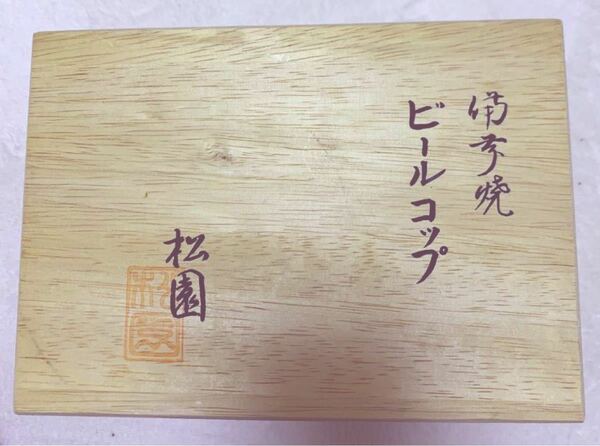 備前焼
ビールコップ
松園
松園